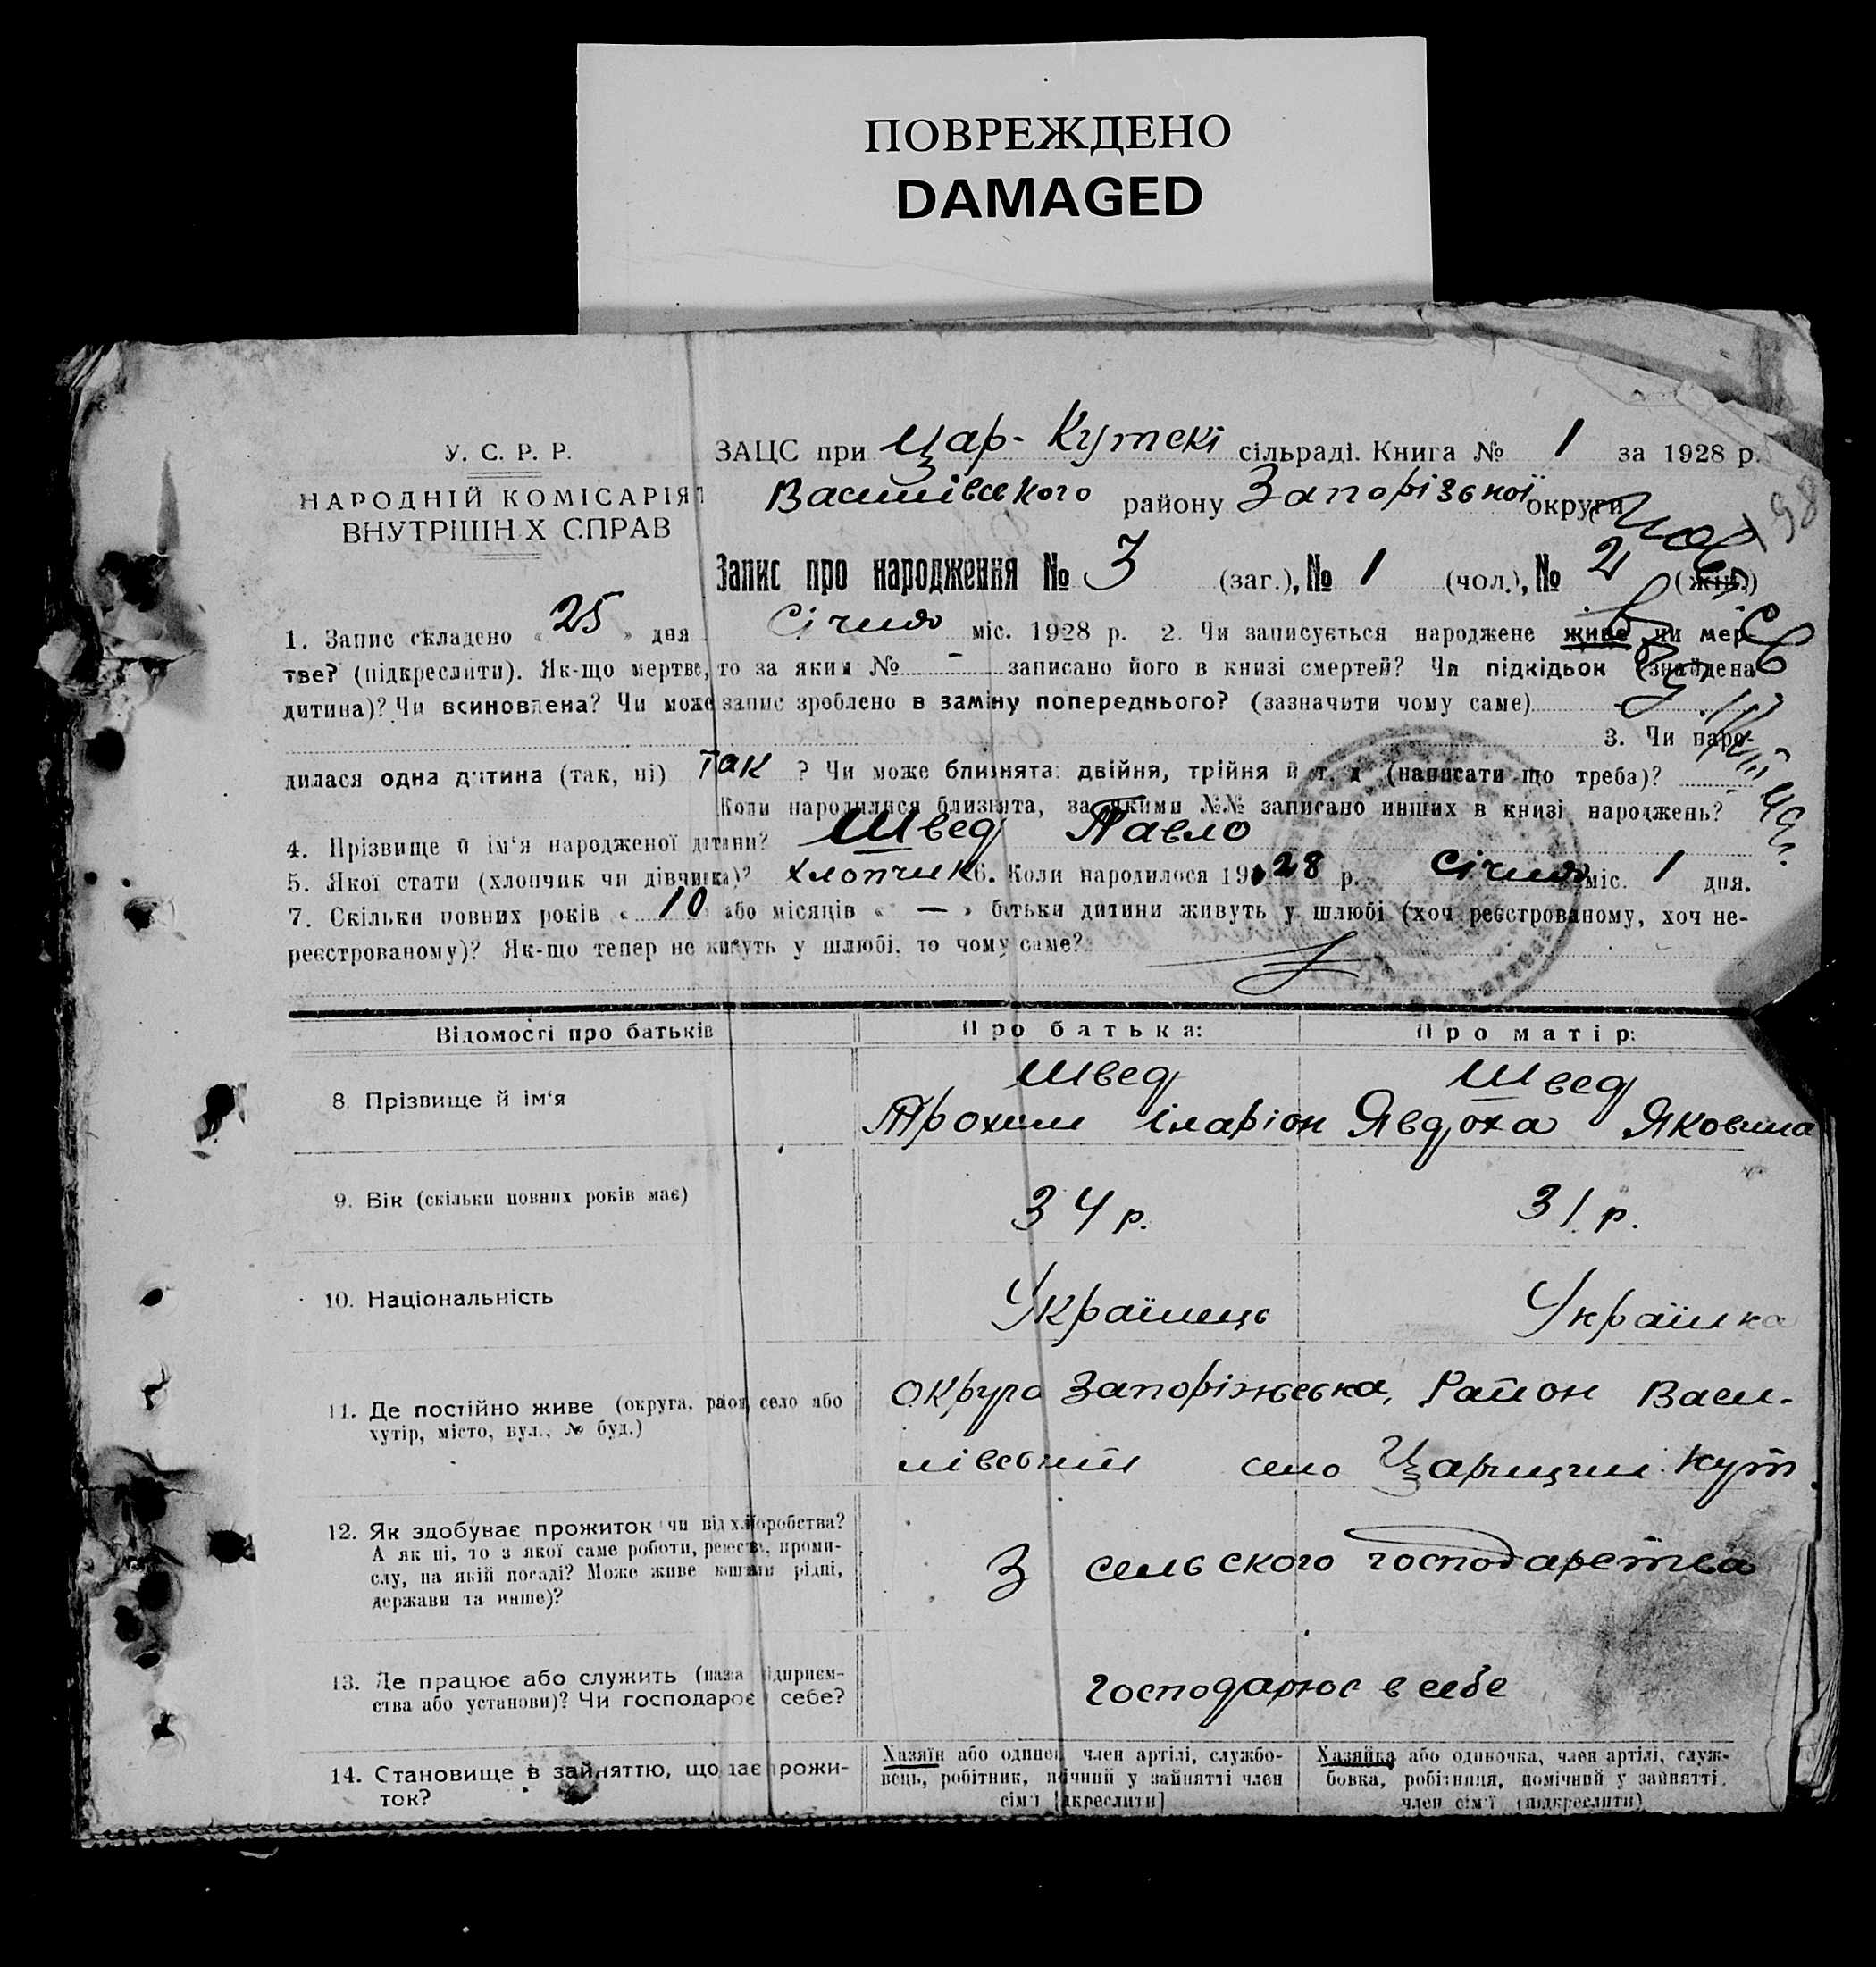 ПОВРЕЖДЕНО
DAMAGED
У. С. Р. Р.
НАРОДНІЙ КОМІСАРІЯТ
ВНУТРІШН Х СПРАВ
ЗАЦС при Цар-Кутскі сільраді. Книга № 1 за 1928 р.
Василівського району Запорізької округи
198
Запис про народження № 3 (заг.), № 1 (чол.), № 2 (жін.)
1. Запис складено « 25 » дня Січня міс. 1928 р. 2. Чи записується народжене живе чи мер-
тве? (підкреслити). Як-що мертве, то за яким № - записано його в книзі смертей? Чи підкідьок (знайдена
дитина)? Чи всиновлена? Чи може запис зроблено в заміну попереднього? (зазначити чому саме)
3. Чи наро-
дилася одна дитина (так, ні) так ? Чи може близнята: двійня, трійня й т. д. (написати що треба)?
Коли народилися близнята, за якими №№ записано инших в книзі народжень? -
4. Прізвище й ім'я народженої дитини? Швед Павло
5. Якої стати (хлопчик чи дівчинка)? хлопчик 6. Коли народилося 1928 р. Січня міс. 1 дня.
7. Скільки повних років « 10 » або місяців « — » батьки дитини живуть у шлюбі (хоч реєстрованому, хоч не-
реєстрованому)? Як-що тепер не живуть у шлюбі, то чому саме?
Відомості про батьків
Про батька:
Про матір:
8. Прізвище й ім'я
Швед
Трохим Іларіон
Швед
Явдоха Яковина
9. Вік (скільки повних років має)
34 р.
31 р.
10. Національність
Українець
Українка
11. Де постійно живе (округа, район, село або
хутір, місто, вул., № буд.)
округа Запоріжська, Район Васи-
лівський село Царицин Кут
12. Як здобуває прожиток чи від хліборобства?
А як ні, то з якої саме роботи, ремества, проми-
слу, на якій посаді? Може живе коштом рідні,
держави та инше)?
З сельского господарства
13. Де працює або служить (назва підприєм-
ства або установи)? Чи господарює в себе?
господарює в себе
14. Становище в зайняттю, що дає прожи-
ток?
Хазяїн або одинец, член артілі, службо-
вець, робітник, помічний у зайнятті член
сім'ї [підкреслити]
Хазяйка або одиночка, член артілі, служ-
бовка, робітниця, помічний у зайнятті
член сім'ї (підкреслити)